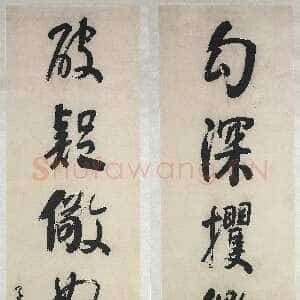 勾深攫
破疑儆
Shufawang.CN